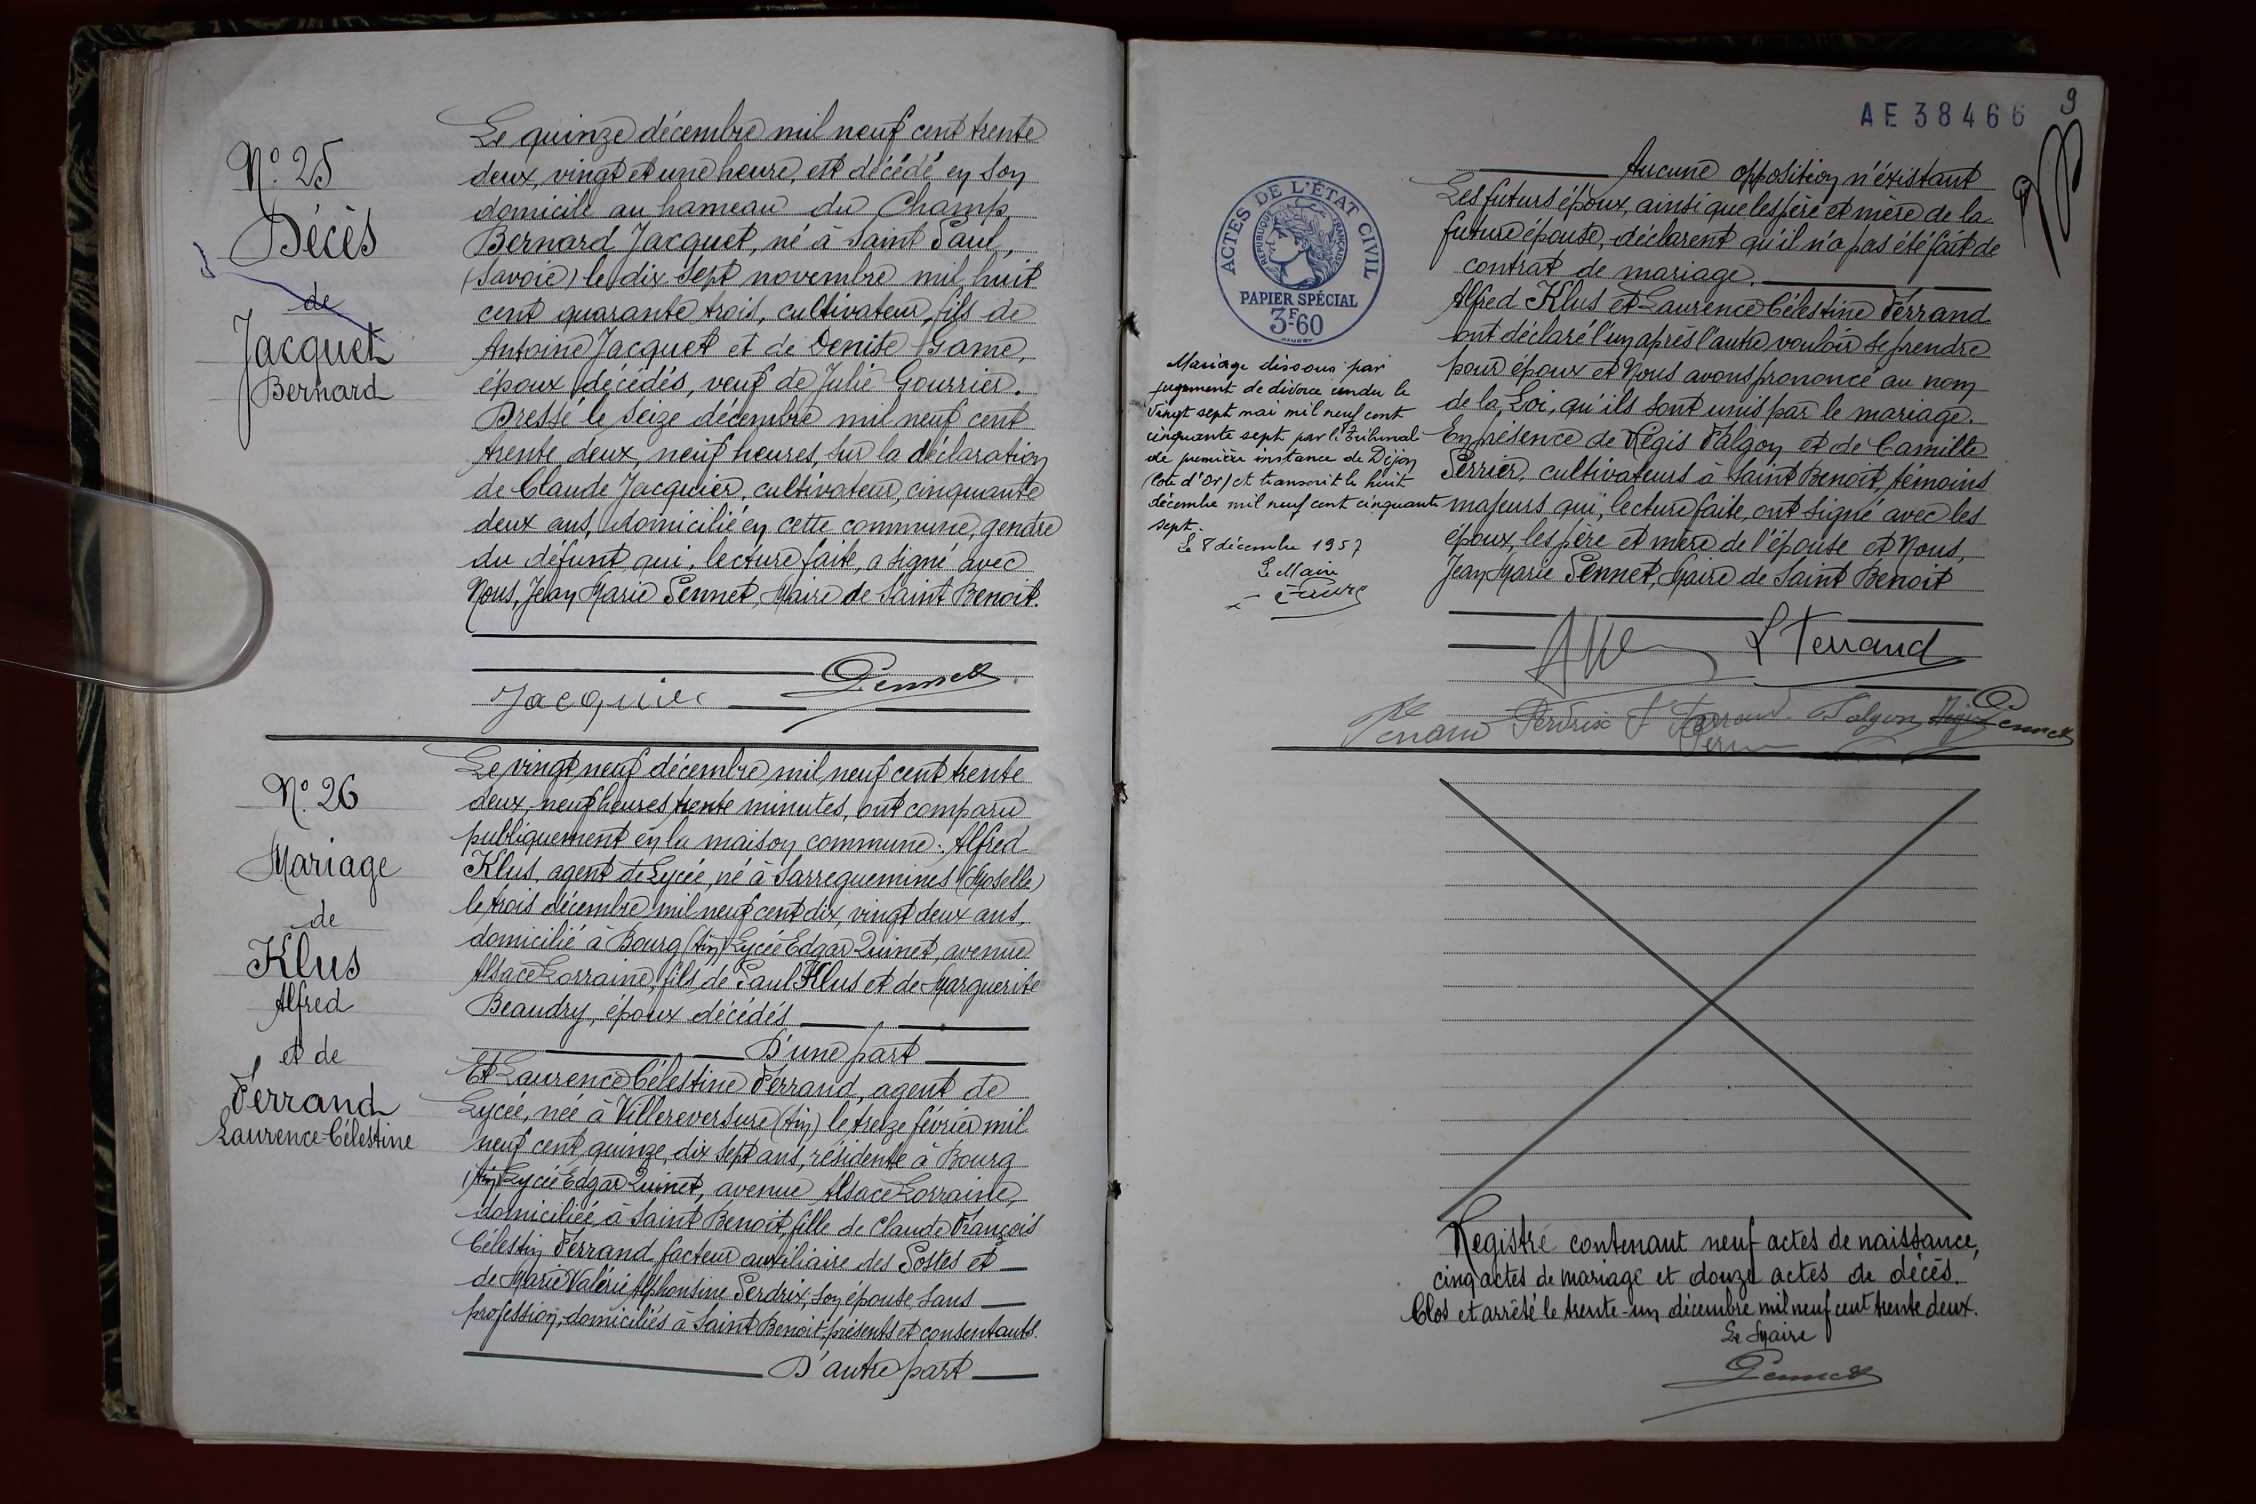 N° 25
Décès
de
Jacquet
Bernard
Le quinze décembre mil neuf cent trente
deux, vingt et une heure, est décédé en son
domicile au hameau du Champ,
Bernard Jacquet, né à Saint Paul,
(Savoie) le dix sept novembre mil huit
cent quarante trois, cultivateur, fils de
Antoine Jacquet et de Denise Game,
époux décédés, veuf de Julie Gourrier.
Dressé le seize décembre mil neuf cent
trente deux, neuf heures, sur la déclaration
de Claude Jacquier, cultivateur, cinquante
deux ans, domicilié en cette commune, gendre
du défunt qui, lecture faite, a signé avec
Nous, Jean Marie Pennet, Maire de Saint Benoit.
Jacquier Pennet
N° 26
Mariage
de
Klus
Alfred
et de
Ferrand
Laurence-Célestine
Le vingt neuf décembre mil neuf cent trente
deux, neuf heures trente minutes, ont comparu
publiquement en la maison commune: Alfred
Klus, agent de Lycée, né à Sarreguemines (Moselle)
le trois décembre mil neuf cent dix, vingt deux ans,
domicilié à Bourg (Ain) Lycée Edgar Quinet, avenue
Alsace Lorraine, fils de Paul Klus et de Marguerite
Beaudry, époux décédés
D'une part
Et Laurence Célestine Ferrand, agent de
Lycée, née à Villereversure (Ain) le treize février mil
neuf cent quinze, dix sept ans, résidente à Bourg
(Ain) Lycée Edgar Quinet, avenue Alsace Lorraine,
domiciliée à Saint Benoit, fille de Claude François
Célestin Ferrand, facteur auxiliaire des Postes et
de Marie Valérie Alphonsine Perdrix, son épouse, sans
profession, domiciliés à Saint Benoit, présents et consentants.
D'autre part
AE 38466
9
ACTES DE L'ÉTAT CIVIL
RÉPUBLIQUE FRANÇAISE
PAPIER SPÉCIAL
3F.60
Mariage dissous par
jugement de divorce rendu le
vingt sept mai mil neuf cent
cinquante sept par le Tribunal
de première instance de Dijon
(Cote d'Or) et transcrit le huit
décembre mil neuf cent cinquante
sept.
Le 8 décembre 1957
Le Maire
Aucune opposition n'éxistant
Les futurs époux, ainsi que les père et mère de la
future épouse, déclarent qu'il n'a pas été fait de
contrat de mariage.
Alfred Klus et Laurence Célestine Ferrand
ont déclaré l'un après l'autre vouloir se prendre
pour époux et Nous avons prononcé au nom
de la Loi, qu'ils sont unis par le mariage.
En présence de Régis Falgon et de Camille
Perrier, cultivateurs à Saint Benoit, témoins
majeurs qui, lecture faite, ont signé avec les
époux, les père et mère de l'épouse et Nous,
Jean Marie Pennet, Maire de Saint Benoit
L Ferrand
Perdrix Ferrand Falgon Régis Pennet
Registre contenant neuf actes de naissance,
cinq actes de mariage et douze actes de décès.
Clos et arrêté le trente-un décembre mil neuf cent trente deux.
Le Maire
Pennet